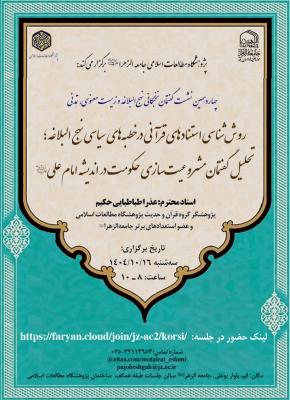 پژوهشگاه مطالعات اسلامی جامعه الزهرا برگزار می‌کند:
چهاردهمین نشست گفتمان نخبگانی نهج البلاغه و زیست معنوی، تمدنی
روش شناسی استنادهای قرآنی در خطبه‌های سیاسی نهج البلاغه؛
تحلیل گفتمان مشروعیت‌سازی حکومت در اندیشه امام علی
استاد محترم: عذرا طباطبایی حکیم
پژوهشگر گروه قرآن و حدیث پژوهشگاه مطالعات اسلامی
و عضو استعدادهای برتر جامعه‌الزهرا
تاریخ برگزاری:
سه‌شنبه ۱۴۰۴/۱۰/۱۶
ساعت: ۸ - ۱۰
لینک حضور در جلسه: https://faryan.cloud/join/jz-ac2/korsi/
شماره تماس: ۰۲۵-۳۲۱۱۲۶۵۳
@eitaa.com/motaleat_eslami
pajoheshgah@jz.ac.ir
مکان: قم، بلوار بوعلی، جامعه الزهرا سالن جلسات طبقه همکف، ساختمان پژوهشگاه مطالعات اسلامی